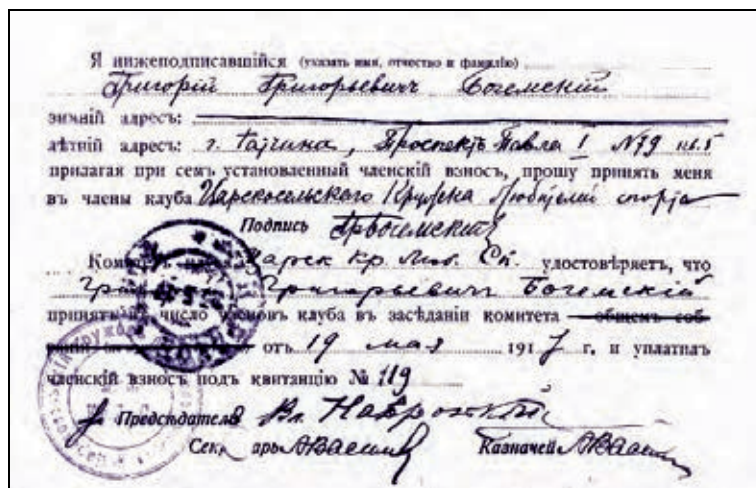 Я нижеподписавшійся (указать имя, отчество и фамилію)
Григорій Григорьевичъ Богемскій
зимній адресъ:
лѣтній адресъ: г. Гатчина, Проспектъ Павла I №79 кв. 5
прилагая при семъ установленный членскій взносъ, прошу принять меня
въ члены клуба Царскосельского Кружка Любителей спорта
Подпись ГрБогемскій
Комитетъ Царск Кр. Люб. Сп. удостовѣряетъ, что
Григорий Григорьевич Богемскій
принятъ въ число членовъ клуба въ засѣданіи комитета общемъ соб
отъ 19 мая 1917 г. и уплатилъ
членскій взносъ подъ квитанцію № 119
Предсѣдатель Вл. Навроцкий
Секретарь Казначей